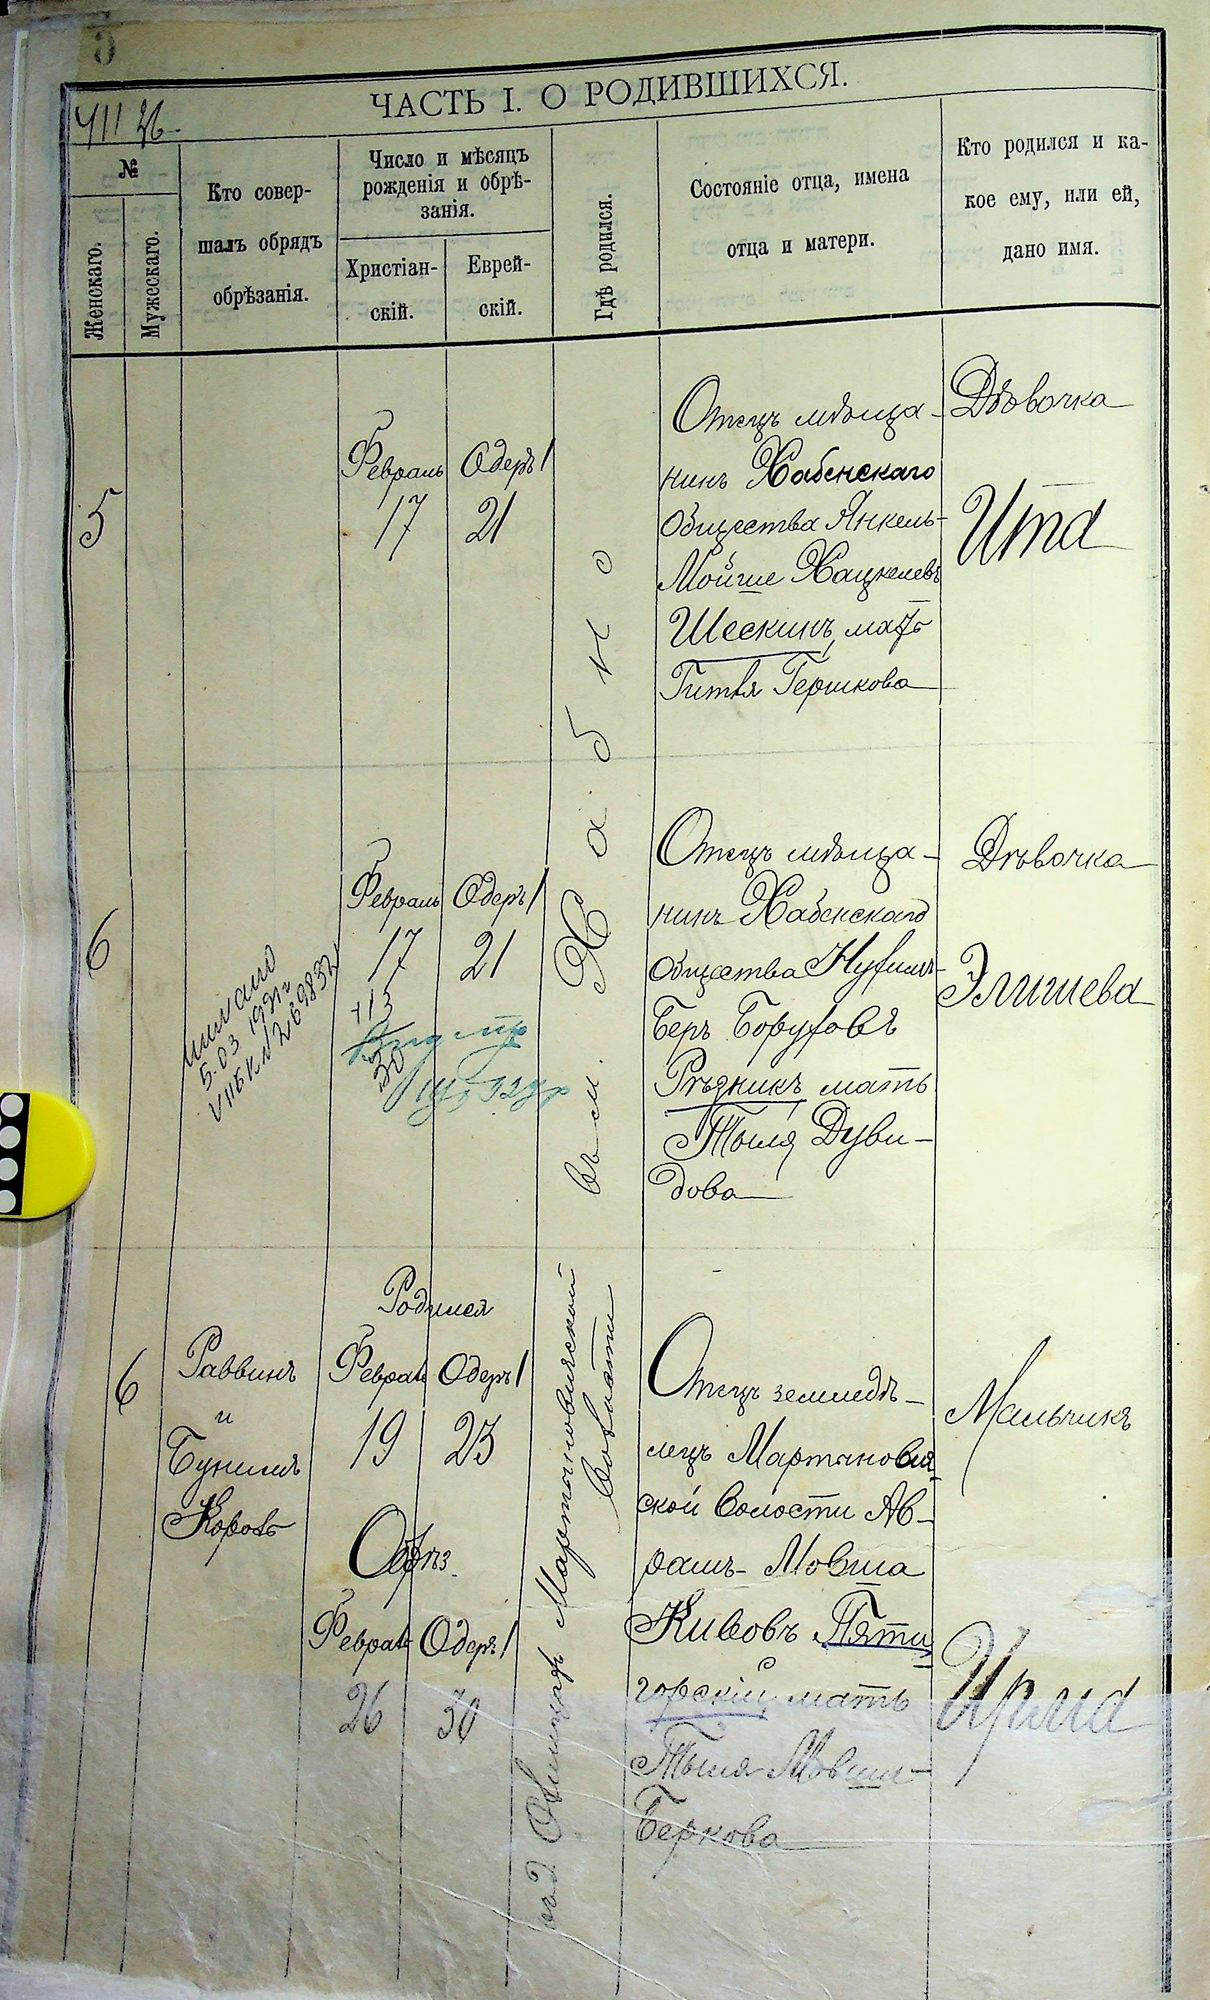 ЧАСТЬ I. О РОДИВШИХСЯ.
№
Женскаго.
Мужескаго.
Кто совер-
шалъ обрядъ
обрѣзанія.
Число и мѣсяцъ
рожденія и обрѣ-
занія.
Христіан-
скій.
Еврей-
скій.
Гдѣ родился.
Состояніе отца, имена
отца и матери.
Кто родился и ка-
кое ему, или ей,
дано имя.
5
Февраль
17
Одеръ I
21
Отецъ мѣща-
нинъ Хабенскаго
общества Янкель-
Мойше Хацкелевъ
Шескинъ, мать
Гитля Гершкова
Дѣвочка
Ита
6
5.03
Февраль
17
Одеръ I
21
въ м. Хабно
Отецъ мѣща-
нинъ Хабенскаго
общества Нухим-
Беръ Боруховъ
Рѣзникъ мать
Тыля Дуви-
дова
Дѣвочка
Элишева
6
Раввинъ
и
Бунимъ
Коробъ
Родился
Февраль
19
Одеръ I
23
Обрѣз.
Февраль
26
Одеръ I
30
Мартыновицкой
Волости
Отецъ земледѣ-
лецъ Мартынович-
ской Волости Ав-
рамъ-Мовша
Кивовъ Пяти
горскій, мать
Тыля Мовши-
Беркова
Мальчикъ